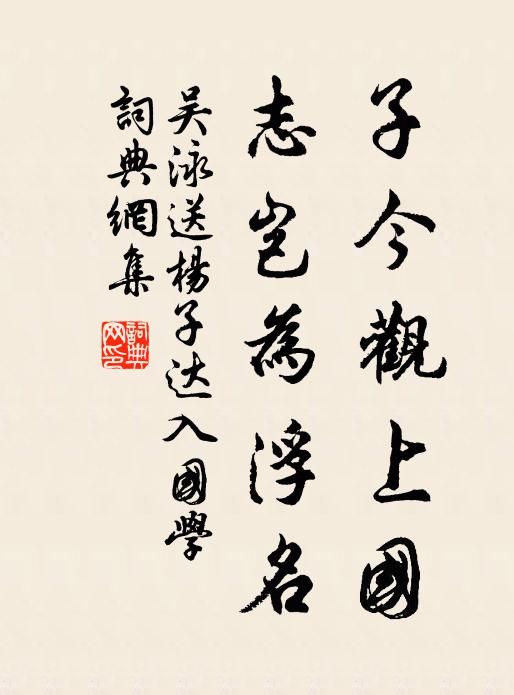 子今觀上國
志豈為浮名
吳泳送楊子达入國學
詞典網集
詞典
网印